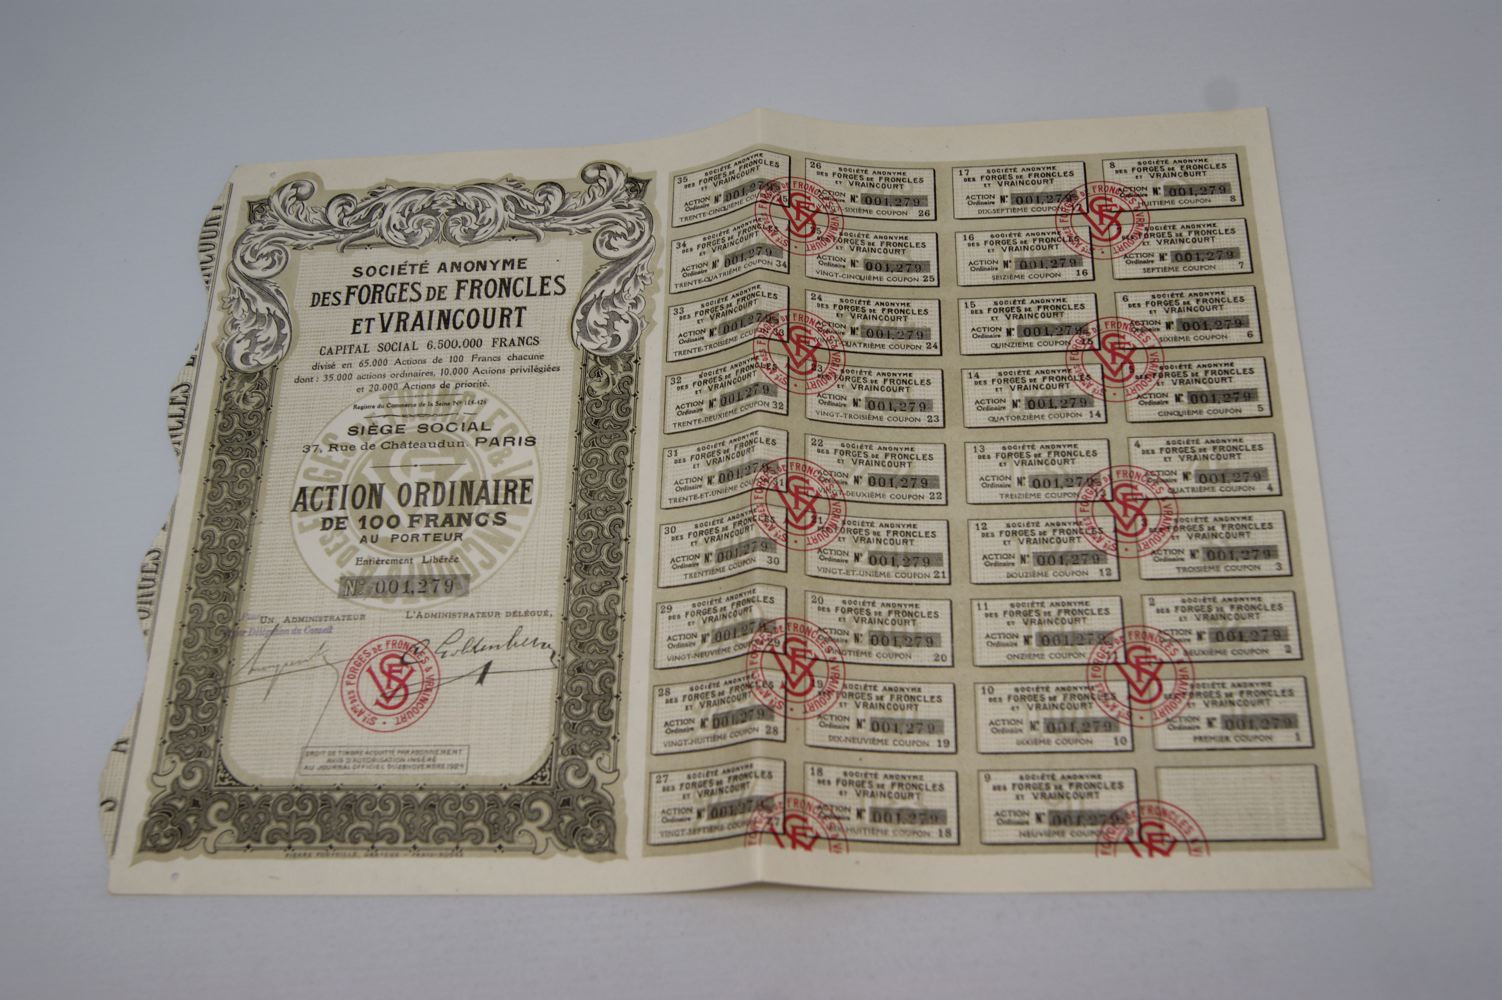 SOCIÉTÉ ANONYME
DES FORGES DE FRONCLES
ET VRAINCOURT
CAPITAL SOCIAL 6.500.000 FRANCS
divisé en 65.000 Actions de 100 Francs chacune
dont : 35.000 actions ordinaires, 10.000 Actions privilégiées
et 20.000 Actions de priorité.
Registre du Commerce de la Seine Nº
SIÈGE SOCIAL
37, Rue de Châteaudun. PARIS
ACTION ORDINAIRE
DE 100 FRANCS
AU PORTEUR
Entièrement Libérée
Nº 001,279
UN ADMINISTRATEUR
L'ADMINISTRATEUR DÉLÉGUÉ,
Délégation du Conseil
STÉ AME DES FORGES DE FRONCLES & VRAINCOURT
DROIT DE TIMBRE ACQUITTÉ PAR ABONNEMENT
AVIS D'AUTORISATION INSÉRÉ
AU JOURNAL OFFICIEL DU 28 NOVEMBRE 1924
35
SOCIÉTÉ ANONYME
DES FORGES DE FRONCLES
ET VRAINCOURT
ACTION Ordinaire Nº 001,279
TRENTE-CINQUIÈME
34
DES FORGES DE FRONCLES
ET VRAINCOURT
ACTION Ordinaire Nº 001,279
TRENTE-QUATRIÈME COUPON 34
33
SOCIÉTÉ ANONYME
DES FORGES DE FRONCLES
ET VRAINCOURT
ACTION Ordinaire Nº 001,279
TRENTE-TROISIÈME
32
SOCIÉTÉ ANONYME
DES FORGES DE FRONCLES
ET VRAINCOURT
ACTION Ordinaire Nº 001,279
TRENTE-DEUXIÈME COUPON 32
31
SOCIÉTÉ ANONYME
DES FORGES DE FRONCLES
ET VRAINCOURT
ACTION Ordinaire Nº 001,279
TRENTE-ET-UNIÈME COUPON 31
30
SOCIÉTÉ ANONYME
DES FORGES DE FRONCLES
ET VRAINCOURT
ACTION Ordinaire Nº 001,279
TRENTIÈME COUPON 30
29
SOCIÉTÉ ANONYME
DES FORGES DE FRONCLES
ET VRAINCOURT
ACTION Ordinaire Nº 001,279
VINGT-NEUVIÈME COUPON 29
28
SOCIÉTÉ ANONYME
DES FORGES DE FRONCLES
ET VRAINCOURT
ACTION Ordinaire Nº 001,279
VINGT-HUITIÈME COUPON 28
27
SOCIÉTÉ ANONYME
DES FORGES DE FRONCLES
ET VRAINCOURT
ACTION Ordinaire Nº 001,279
VINGT-SEPTIÈME 27
26
SOCIÉTÉ ANONYME
DES FORGES DE FRONCLES
ET VRAINCOURT
ACTION Ordinaire Nº 001,279
SIXIÈME COUPON 26
SOCIÉTÉ ANONYME
DES FORGES DE FRONCLES
ET VRAINCOURT
ACTION Ordinaire Nº 001,279
VINGT-CINQUIÈME COUPON 25
24
SOCIÉTÉ ANONYME
DES FORGES DE FRONCLES
ET VRAINCOURT
ACTION Nº 001,279
QUATRIÈME COUPON 24
SOCIÉTÉ ANONYME
DES FORGES DE FRONCLES
ET VRAINCOURT
ACTION Ordinaire Nº 001,279
VINGT-TROISIÈME COUPON 23
22
SOCIÉTÉ ANONYME
DES FORGES DE FRONCLES
ET VRAINCOURT
ACTION Ordinaire Nº 001,279
DEUXIÈME COUPON 22
SOCIÉTÉ ANONYME
DES FORGES DE FRONCLES
ET VRAINCOURT
ACTION Ordinaire Nº 001,279
VINGT-ET-UNIÈME COUPON 21
20
SOCIÉTÉ ANONYME
DES FORGES DE FRONCLES
ET VRAINCOURT
Nº 001,279
VINGTIÈME COUPON 20
19
SOCIÉTÉ ANONYME
DES FORGES DE FRONCLES
ET VRAINCOURT
ACTION Ordinaire Nº 001,279
DIX-NEUVIÈME COUPON 19
18
SOCIÉTÉ ANONYME
DES FORGES DE FRONCLES
ET VRAINCOURT
ACTION Nº 001,279
DIX-HUITIÈME COUPON 18
17
SOCIÉTÉ ANONYME
DES FORGES DE FRONCLES
ET VRAINCOURT
ACTION Ordinaire Nº 001,279
DIX-SEPTIÈME COUPON
16
SOCIÉTÉ ANONYME
DES FORGES DE FRONCLES
ET VRAINCOURT
ACTION Ordinaire Nº 001,279
SEIZIÈME COUPON 16
15
SOCIÉTÉ ANONYME
DES FORGES DE FRONCLES
ET VRAINCOURT
ACTION Ordinaire Nº 001,279
QUINZIÈME COUPON 15
14
SOCIÉTÉ ANONYME
DES FORGES DE FRONCLES
ET VRAINCOURT
ACTION Ordinaire Nº 001,279
QUATORZIÈME COUPON 14
13
SOCIÉTÉ ANONYME
DES FORGES DE FRONCLES
ET VRAINCOURT
ACTION Ordinaire Nº 001,279
TREIZIÈME COUPON 13
12
SOCIÉTÉ ANONYME
DES FORGES DE FRONCLES
ET VRAINCOURT
ACTION Ordinaire Nº 001,279
DOUZIÈME COUPON 12
11
SOCIÉTÉ ANONYME
DES FORGES DE FRONCLES
ET VRAINCOURT
ACTION Ordinaire Nº 001,279
ONZIÈME COUPON 11
10
SOCIÉTÉ ANONYME
DES FORGES DE FRONCLES
ET VRAINCOURT
ACTION Ordinaire Nº 001,279
DIXIÈME COUPON 10
9
SOCIÉTÉ ANONYME
DES FORGES DE FRONCLES
ET VRAINCOURT
ACTION Ordinaire Nº 001,279
NEUVIÈME COUPON 9
8
SOCIÉTÉ ANONYME
DES FORGES DE FRONCLES
ET VRAINCOURT
ACTION Nº 001,279
HUITIÈME COUPON 8
SOCIÉTÉ ANONYME
DES FORGES DE FRONCLES
ET VRAINCOURT
ACTION Ordinaire Nº 001,279
SEPTIÈME COUPON 7
6
SOCIÉTÉ ANONYME
DES FORGES DE FRONCLES
ET VRAINCOURT
Nº 001,279
SIXIÈME COUPON 6
SOCIÉTÉ ANONYME
DES FORGES DE FRONCLES
ET VRAINCOURT
ACTION Ordinaire Nº 001,279
CINQUIÈME COUPON 5
4
SOCIÉTÉ ANONYME
DES FORGES DE FRONCLES
ET VRAINCOURT
ACTION Nº 001,279
QUATRIÈME COUPON 4
3
SOCIÉTÉ ANONYME
DES FORGES DE FRONCLES
ET VRAINCOURT
ACTION Ordinaire Nº 001,279
TROISIÈME COUPON 3
2
SOCIÉTÉ ANONYME
DES FORGES DE FRONCLES
ET VRAINCOURT
ACTION Nº 001,279
DEUXIÈME COUPON 2
SOCIÉTÉ ANONYME
DES FORGES DE FRONCLES
ET VRAINCOURT
ACTION Ordinaire Nº 001,279
PREMIER COUPON 1